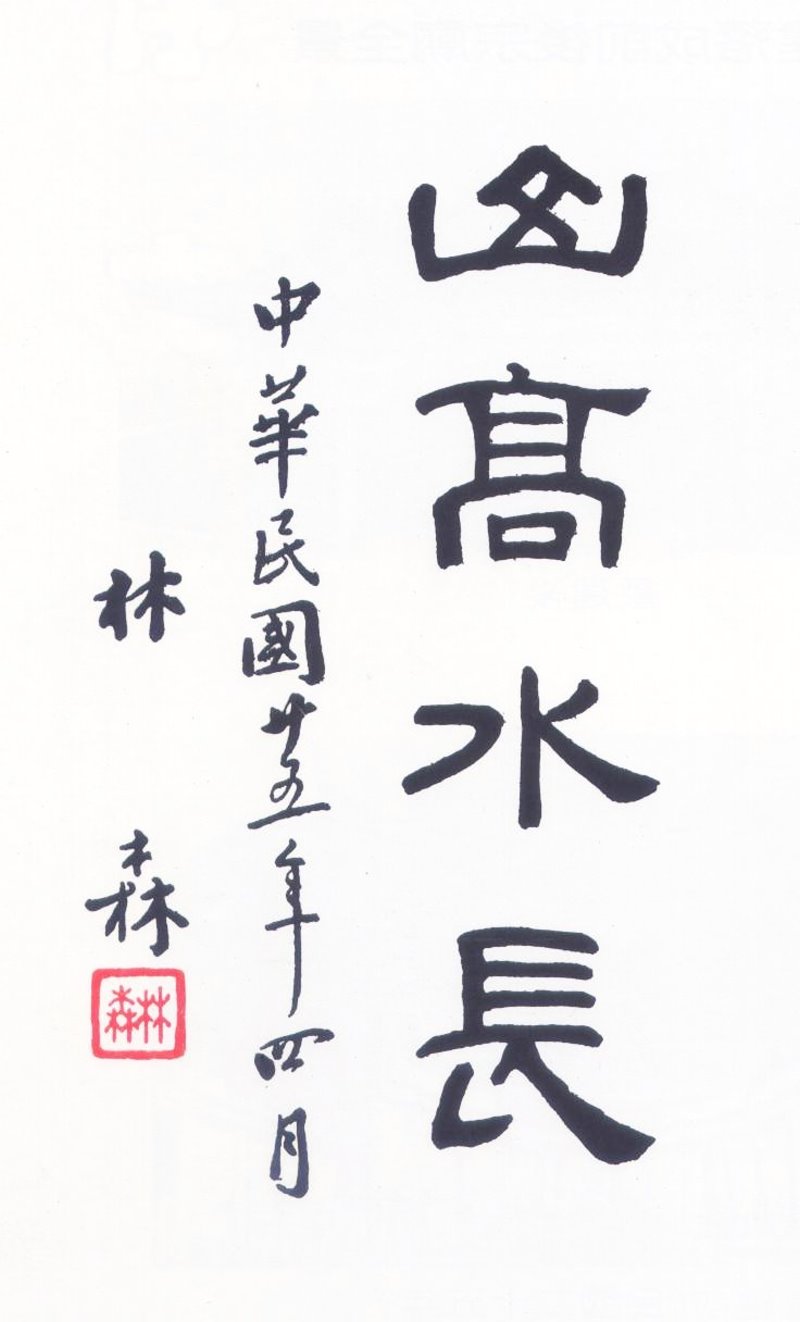 山高水長
中華民國廿五年四月
林森
林森